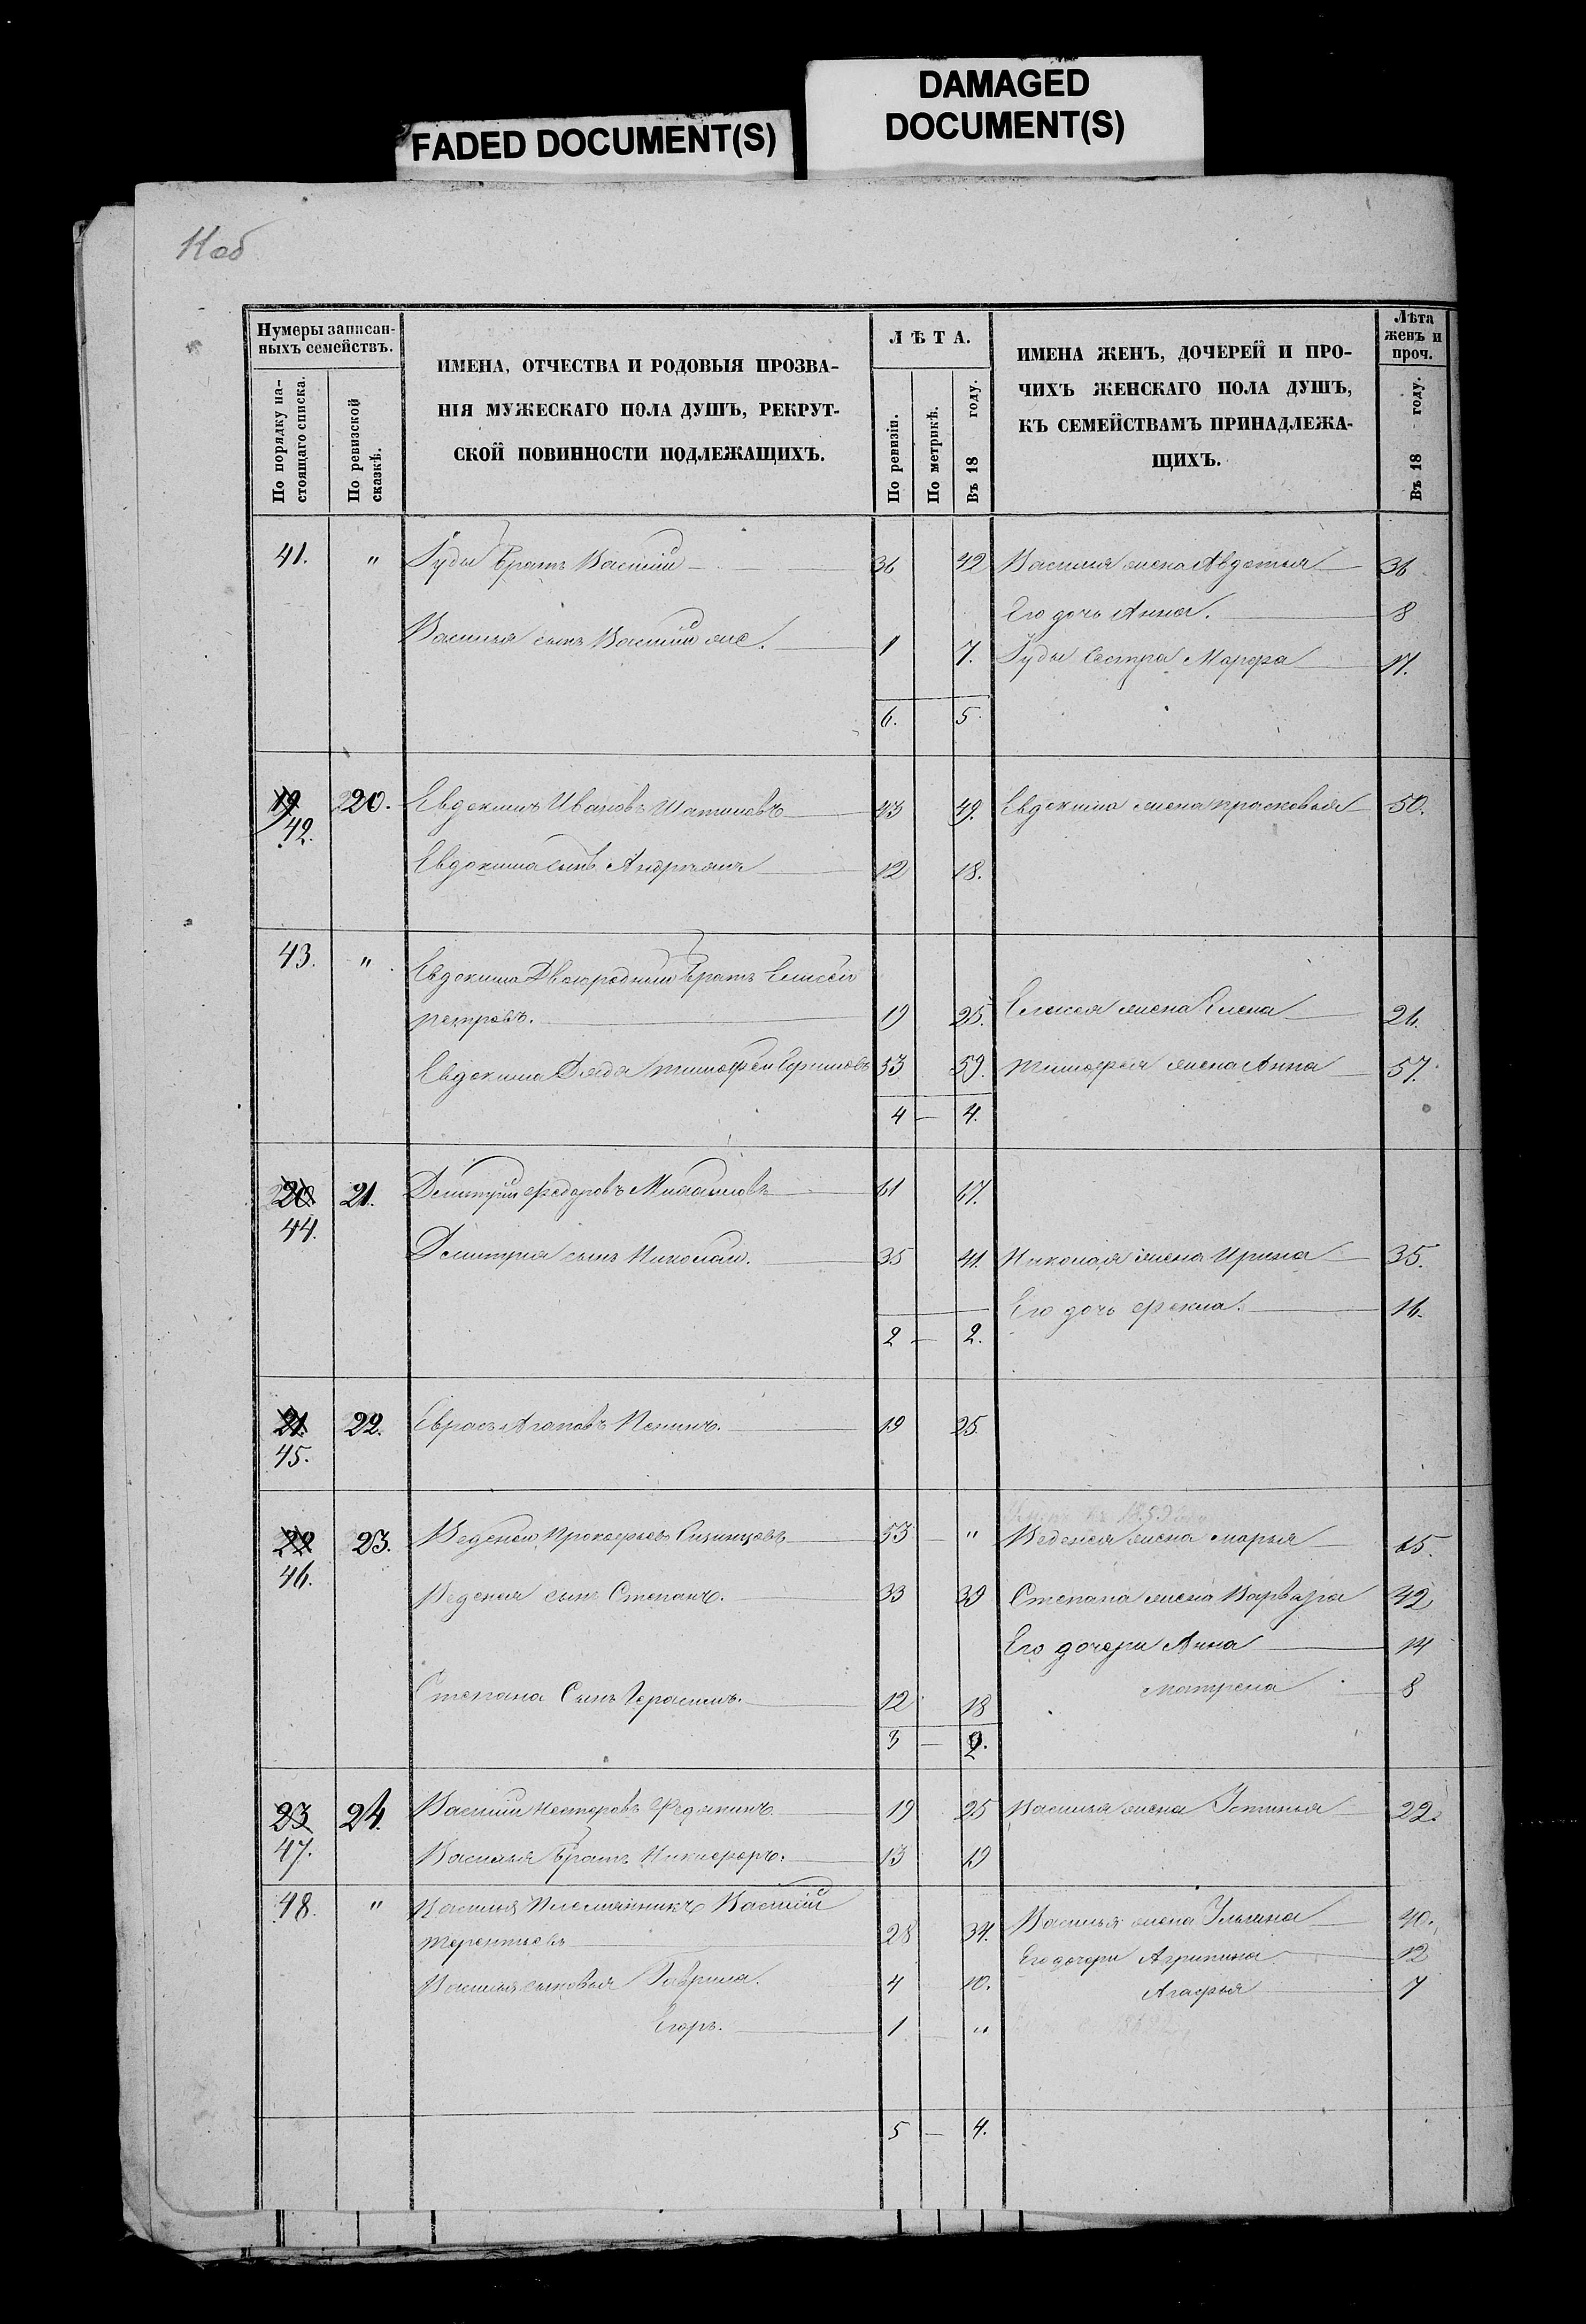 FADED DOCUMENT(S)
DAMAGED
DOCUMENT(S)
11об
Нумеры записан-
ныхъ семействъ.
По порядку на-
стоящаго списка.
По ревизской
сказкѣ.
ИМЕНА, ОТЧЕСТВА И РОДОВЫЯ ПРОЗВА-
НІЯ МУЖЕСКАГО ПОЛА ДУШЪ, РЕКРУТ-
СКОЙ ПОВИННОСТИ ПОДЛЕЖАЩИХЪ.
ЛѢТА.
По ревизіи.
По метрикѣ.
Въ 18 году.
ИМЕНА ЖЕНЪ, ДОЧЕРЕЙ И ПРО-
ЧИХЪ ЖЕНСКАГО ПОЛА ДУШЪ,
КЪ СЕМЕЙСТВАМЪ ПРИНАДЛЕЖА-
ЩИХЪ.
Лѣта
женъ и
проч.
Въ 18 году.
41. " Іуды братъ Василій 36 42 Василья жена Авдотья 36
Его дочь Анна. 8
Василья сынъ Василій же. 1 7. Іуды сестра Марфа 17.
6. 5.
19 20. Евдокимъ Ивановъ 43 49. Евдокима жена Прасковья 50.
42.
Евдокима сынъ Андреянъ 12 18.
43. " Евдокима Двоюродный братъ Елисей
Петровъ. 19 25. Елисея жена Елена 21.
Евдокима Дядя Тимофей Ефимовъ 53 59. Тимофея жена Анна 57.
4 — 4.
20 21. Дмитрій Федоровъ Михайловъ 61 67.
44.
Дмитрія сынъ Николай. 35 41. Николая жена Ирина 35.
Его дочь Фекла. 16.
2 — 2.
21 22. Агаповъ 19 25.
45.
22 23. Веденей Прокофьевъ 53 — " Веденея жена Марья 65.
46.
Веденея сынъ Степанъ. 33 39 Степана жена Варвара 42
Его дочери Анна 14
Матрена 8
Степана Сынъ Герасимъ. 12 18
3 — 2.
23 24. Василій Нестеровъ Федякинъ 19 25 Василья жена Устинья 22.
47.
Василья братъ Никифоръ. 13 19
48. " Василья Племянникъ Василій
Терентьевъ 28 34. Василья жена Ульяна 40.
Его дочери Агрипина 12
Василья сыновья Гаврила. 4 10. Агафья 7
Егоръ. 1 "
5 — 4.